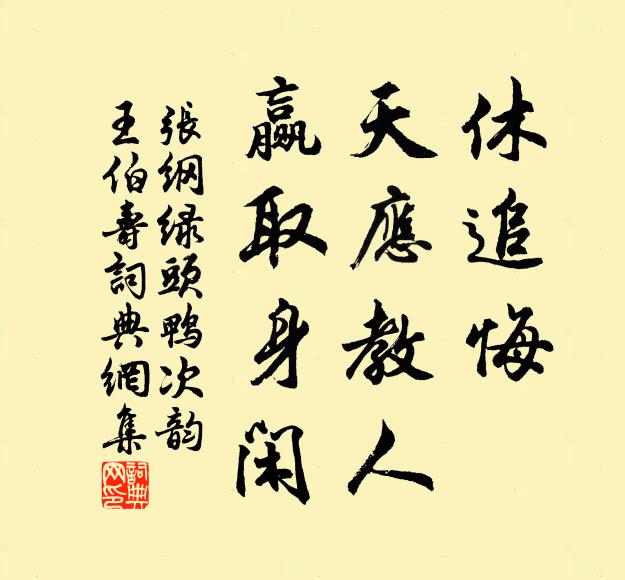 休追悔
天應教人
贏取身閑
張綱綠頭鴨次韵
王伯壽詞典網集
詞典网印